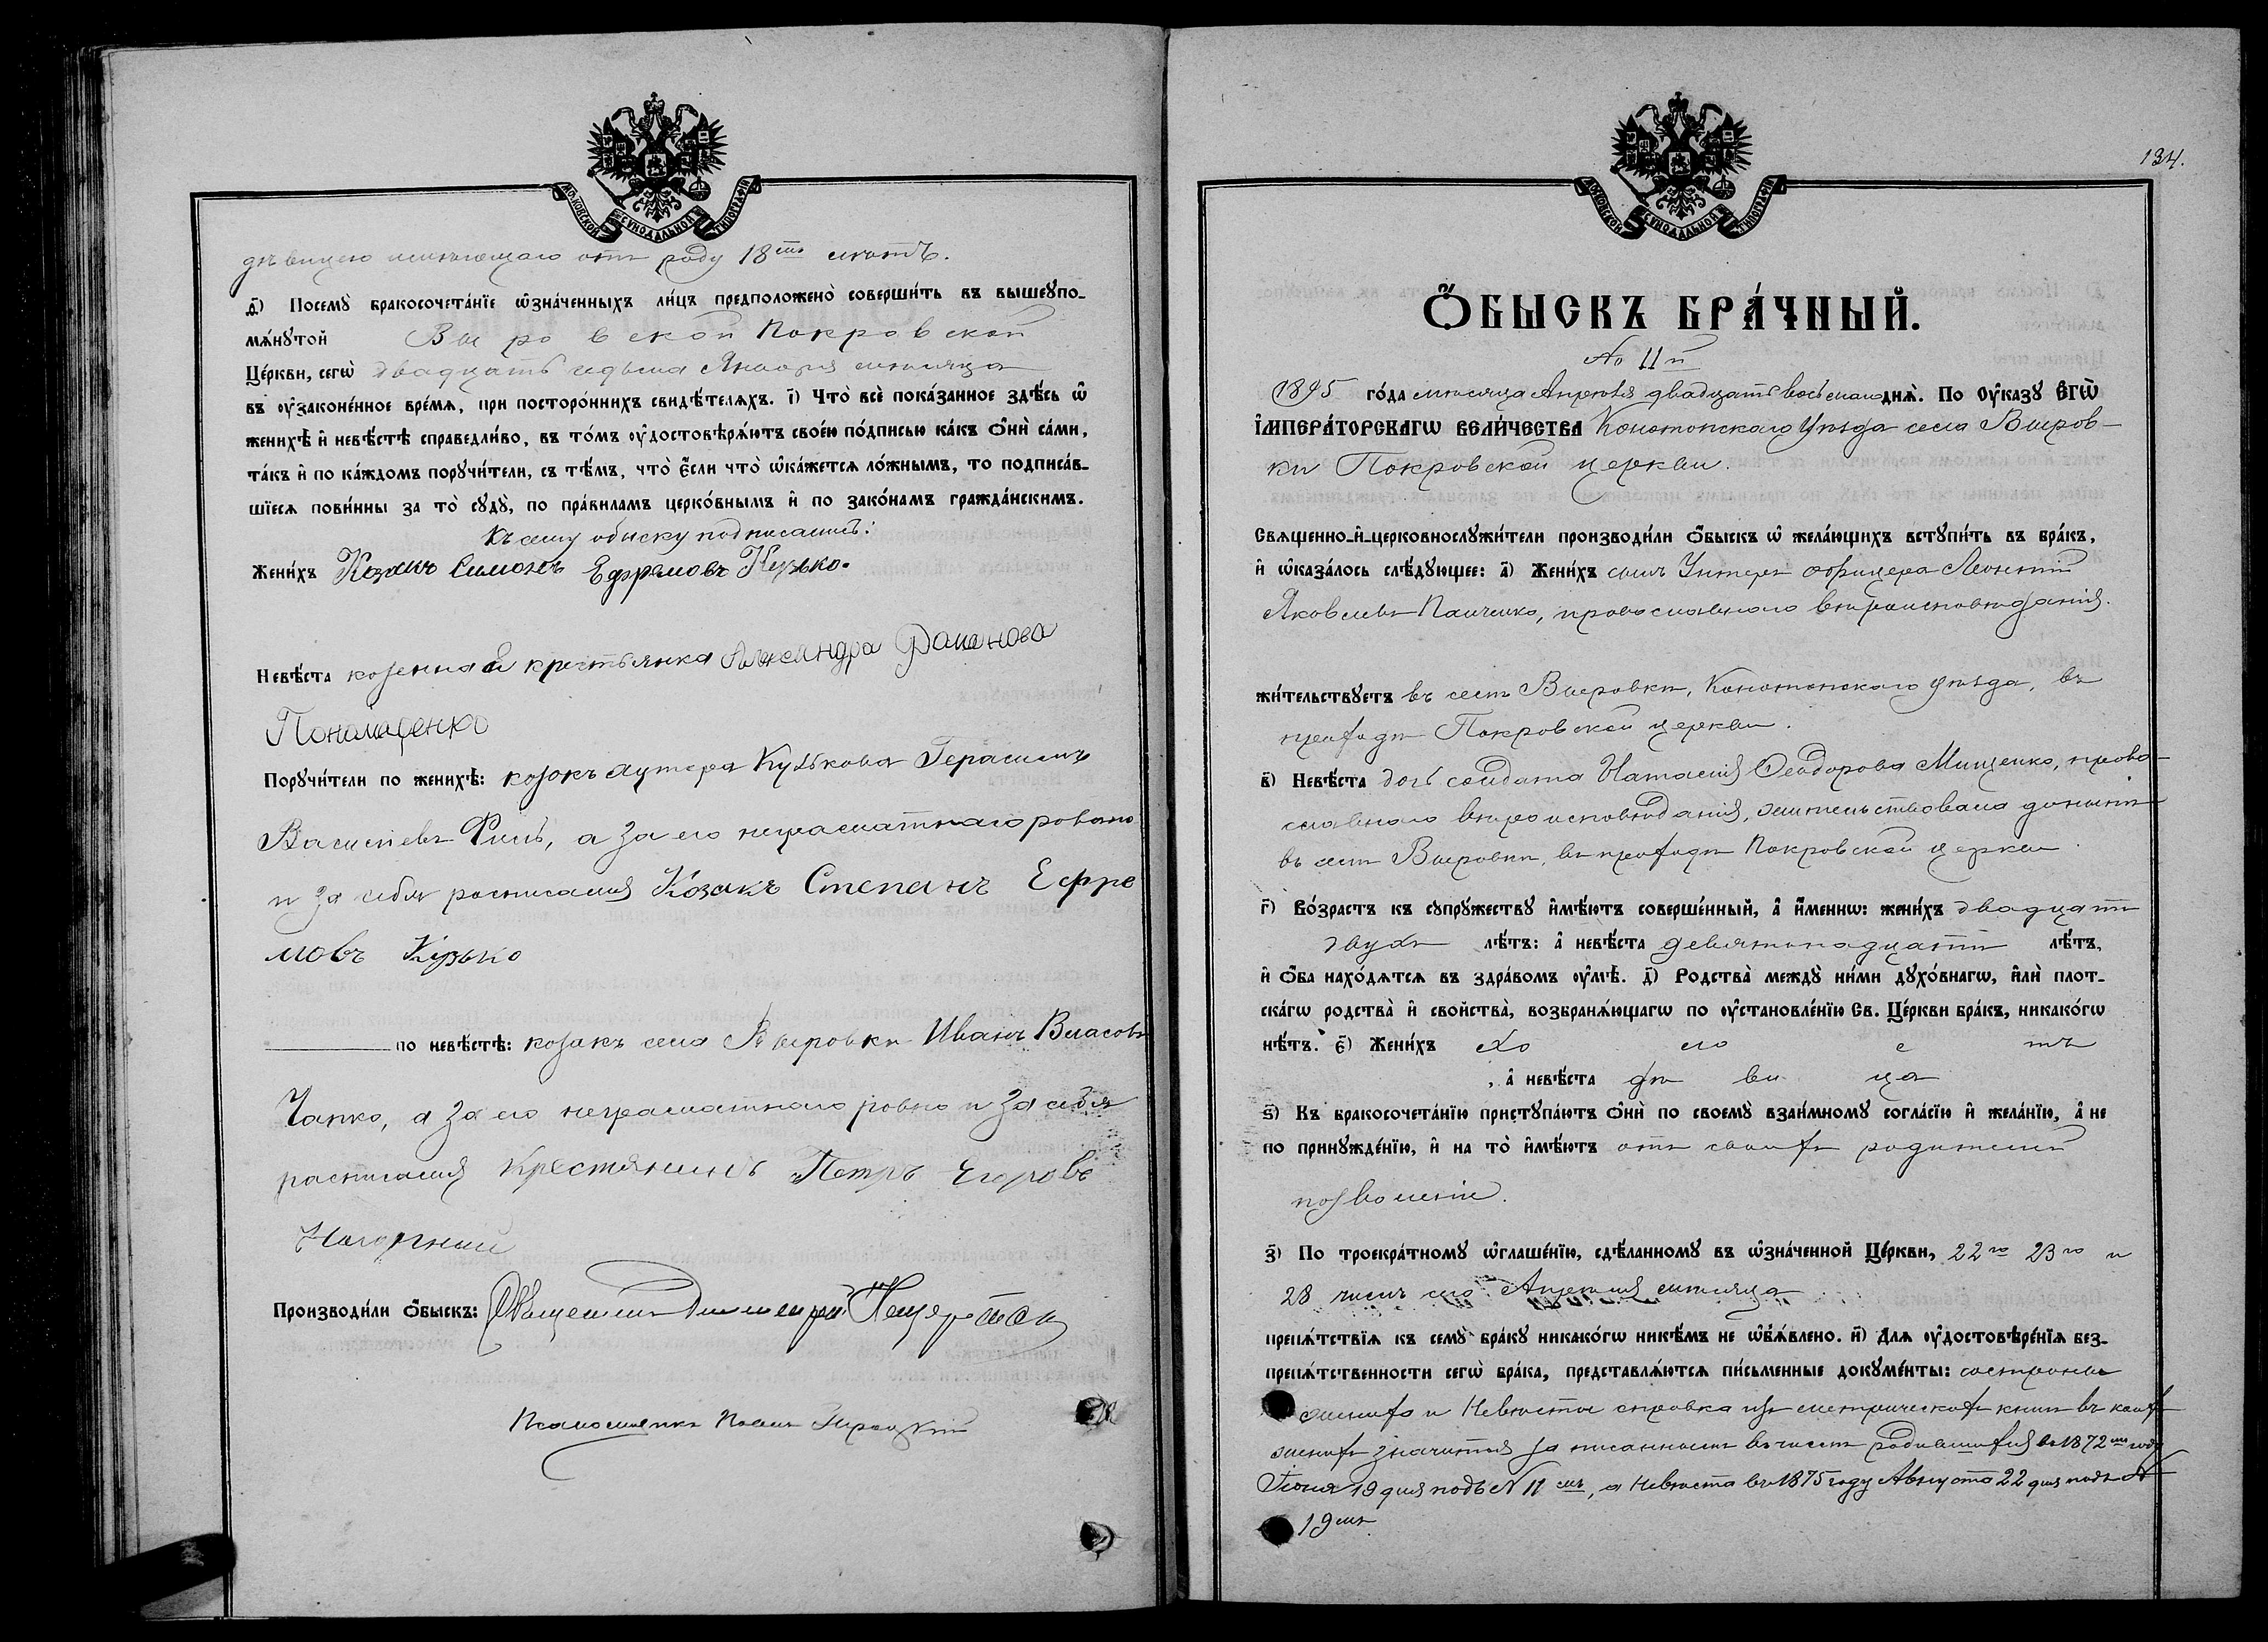 МОСКОВСКОЙ СѴНОДАЛЬНОЙ ТИПОГРАФІИ
дѣвицею имѣющаго отъ роду 18ть лѣтъ.
д҃) Посемꙋ̀ бракосочета́нїе ѡ҆зна́ченныхъ ли́цъ предположено̀ соверши́ть въ вышеꙋпо-
мѧ́нꙋтой Выровской Покровской
Це́ркви, сегѡ̀ двадцать седьма Января мѣсяца
въ ᲂу҆законе́нное вре́мѧ, при посторо́ннихъ свидѣ́телѧхъ. і҃) Что̀ всѐ пока́занное здѣ́сь ѡ҆
женихѣ̀ и҆ невѣ́стѣ справедли́во, въ то́мъ ᲂу҆достовѣрѧ́ютъ свое́ю по́дписью ка́къ ѻ҆нѝ са́ми,
та́къ и҆ по ка́ждомъ порꙋчи́тели, съ тѣ́мъ, что̀ є҆́сли что̀ ѡ҆ка́жетсѧ ло́жнымъ, то подписа́в-
шїесѧ пови́нны за то̀ сꙋдꙋ̀, по пра́виламъ церко́внымъ и҆ по зако́намъ гражда́нскимъ.
Къ сему обыску подписались:
Жени́хъ Козакъ Симонъ Ефремовъ Кузько.
Невѣ́ста козенная крестьянка Александра Романова
Пономаренко
Порꙋчи́тели по женихѣ̀: козакъ хутора Кузькова Герасимъ
Василіевъ Филь, а за его неграматнаго ровно
и за себя росписался Козакъ Степанъ Ефре
мовъ Кузько
по невѣ́стѣ: козакъ села Выровки Иванъ Власовъ
Чапко, а за его неграматнаго ровно и за себя
росписался Крестянинъ Петръ Егоровъ
Нагорный
Производи́ли ѻ҆́быскъ: Священникъ Димитрій
Псаломщикъ
134.
МОСКОВСКОЙ СѴНОДАЛЬНОЙ ТИПОГРАФІИ
Ѻ҆́БЫСКЪ БРА́ЧНЫЙ.
№ 11й
1895 го́да мѣсяца Апрѣля двадцать восьмаго днѧ̀. По Оу҆ка́зꙋ Е҆гѡ̀
І҆мпера́торскагѡ Вели́чества Конотопскаго Уѣзда села Выров-
ки Покровской церкви.
Свѧщенно-и҆-церковнослꙋжи́тели производи́ли ѻ҆́быскъ ѡ҆ жела́ющихъ встꙋпи́ть въ бра́къ,
и҆ ѡ҆каза́лось слѣ́дꙋющее: а҃) Жени́хъ сынъ Унтеръ офицера Леонтій
Яковлевъ Панченко, православнаго вѣроисповѣданія.
жи́тельствꙋетъ въ селѣ Выровки, Конотопскаго уѣзда, въ
приходѣ Покровской церкви.
в҃) Невѣ́ста дочь солдата Наталія Ѳеодорова Мищенко, право-
славнаго вѣроисповѣданія, жительствовала донынѣ
въ селѣ Выровки, въ приходѣ Покровской церкви.
г҃) Во́зрастъ къ сꙋпрꙋ́жествꙋ и҆мѣ́ютъ соверше́нный, а҆ и҆́меннѡ: жени́хъ двадцати
двухъ лѣ́тъ: а҆ невѣ́ста девятонадцати лѣ́тъ,
и҆ ѻ҆́ба нахо́дѧтсѧ въ здра́вомъ ᲂу҆мѣ̀. д҃) Родства̀ междꙋ̀ ни́ми дꙋхо́внагѡ, и҆лѝ плот-
ска́гѡ родства̀ и҆ свойства̀, возбранѧ́ющагѡ по ᲂу҆становле́нїю Св. Це́ркви бра́къ, никако́гѡ
нѣ́тъ. є҃) Жени́хъ холостъ
, а҆ невѣ́ста дѣвица
ѕ҃) Къ бракосочета́нїю пристꙋпа́ютъ ѻ҆нѝ по своемꙋ̀ взаи́мномꙋ согла́сїю и҆ жела́нїю, а҆ не
по принꙋжде́нїю, и҆ на то̀ и҆мѣ́ютъ отъ своихъ родителей
позволеніе.
з҃) По троекра́тномꙋ ѡ҆глаше́нїю, сдѣ́ланномꙋ въ ѡ҆зна́ченной Це́ркви, 22го 23го и
28 чиселъ сего Апрѣля мѣсяца
препѧ́тствїѧ къ семꙋ̀ бра́кꙋ никако́гѡ никѣ́мъ не ѡ҆б̾ѧ́влено. и҃) Для ᲂу҆достовѣре́нїѧ без-
препѧ́тственности сегѡ̀ бра́ка, представлѧ́ютсѧ пи́сьменные докꙋме́нты: состороны
жениха и Невѣсты справка изъ метрическихъ книгъ въ коихъ
женихъ значится записаннымъ въ числѣ родившихся въ 1872мъ году
Іюня 19 дня подъ № 11 мъ, а Невѣста въ 1875 году Августа 22 дня подъ №
19мъ.